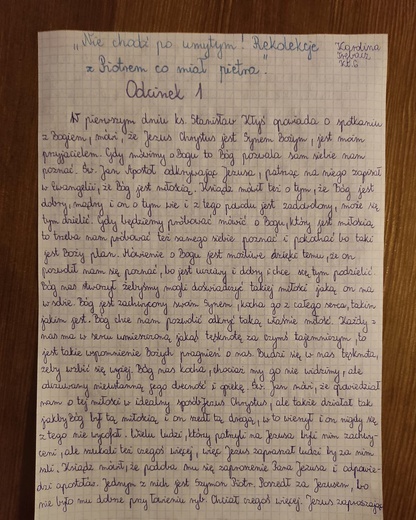 „Nie chodź po umytym! Rekolekcje
z Piotrem co miał pietra."
Karolina
kl. 8
Odcinek 1
W pierwszym dniu ks. Stanisław opowiada o spotkaniu
z Bogiem, mówi, że Jezus Chrystus jest Synem Bożym, jest moim
przyjacielem. Gdy mówimy o Bogu to Bóg pozwala sam siebie nam
poznać. Św. Jan Apostoł odkrywając Jezusa, patrząc na niego zapisał
w Ewangelii, że Bóg jest miłością. Ksiądz mówił też o tym, że Bóg jest
dobry, mądry i on o tym wie i z tego powodu jest zadowolony, może się
tym dzielić. Gdy będziemy próbować mówić o Bogu, który jest miłością
to trzeba nam próbować też samego siebie poznać i pokochać bo taki
jest Boży plan. Mówienie o Bogu jest możliwe dzięki temu, że on
pozwolił nam się poznać, bo jest i dobry i chce się tym podzielić.
Bóg nas stworzył żebyśmy mogli doświadczyć takiej miłości jaką on ma
w sobie. Bóg jest zachwycony swoim Synem, kocha go z całego serca, takim
jakim jest. Bóg chce nam pozwolić odkryć taką właśnie miłość. Każdy z
nas ma w sercu umieszczoną jakąś tęsknotę za czymś tajemniczym, to
jest takie wspomnienie Bożych pragnień o nas. Budzi się w nas tęsknota,
żeby wzbić się wyżej. Bóg nas kocha, chociaż my go nie widzimy, ale
odczuwamy nieustanną jego obecność i opiekę. Św. Jan mówi, że opowiedział
nam o tej miłości w idealny sposób Jezus Chrystus, ale także działał tak
jakby Bóg był tą miłością i on szedł tą drogą, w to wierzył i on nigdy się
z tego nie wycofał. Wielu ludzi, którzy patrzyli na Jezusa byli nim zachwy-
ceni, ale szukali też czegoś więcej, więc Jezus zapraszał ludzi by za nim
szli. Ksiądz mówił, że podoba mu się zaproszenie Pana Jezusa i odpowie-
dzi apostołów. Jednym z nich jest Szymon Piotr. Poszedł za Jezusem, bo
nie było mu dobrze przy łowieniu ryb. Chciał czegoś więcej. Jezus zapraszając